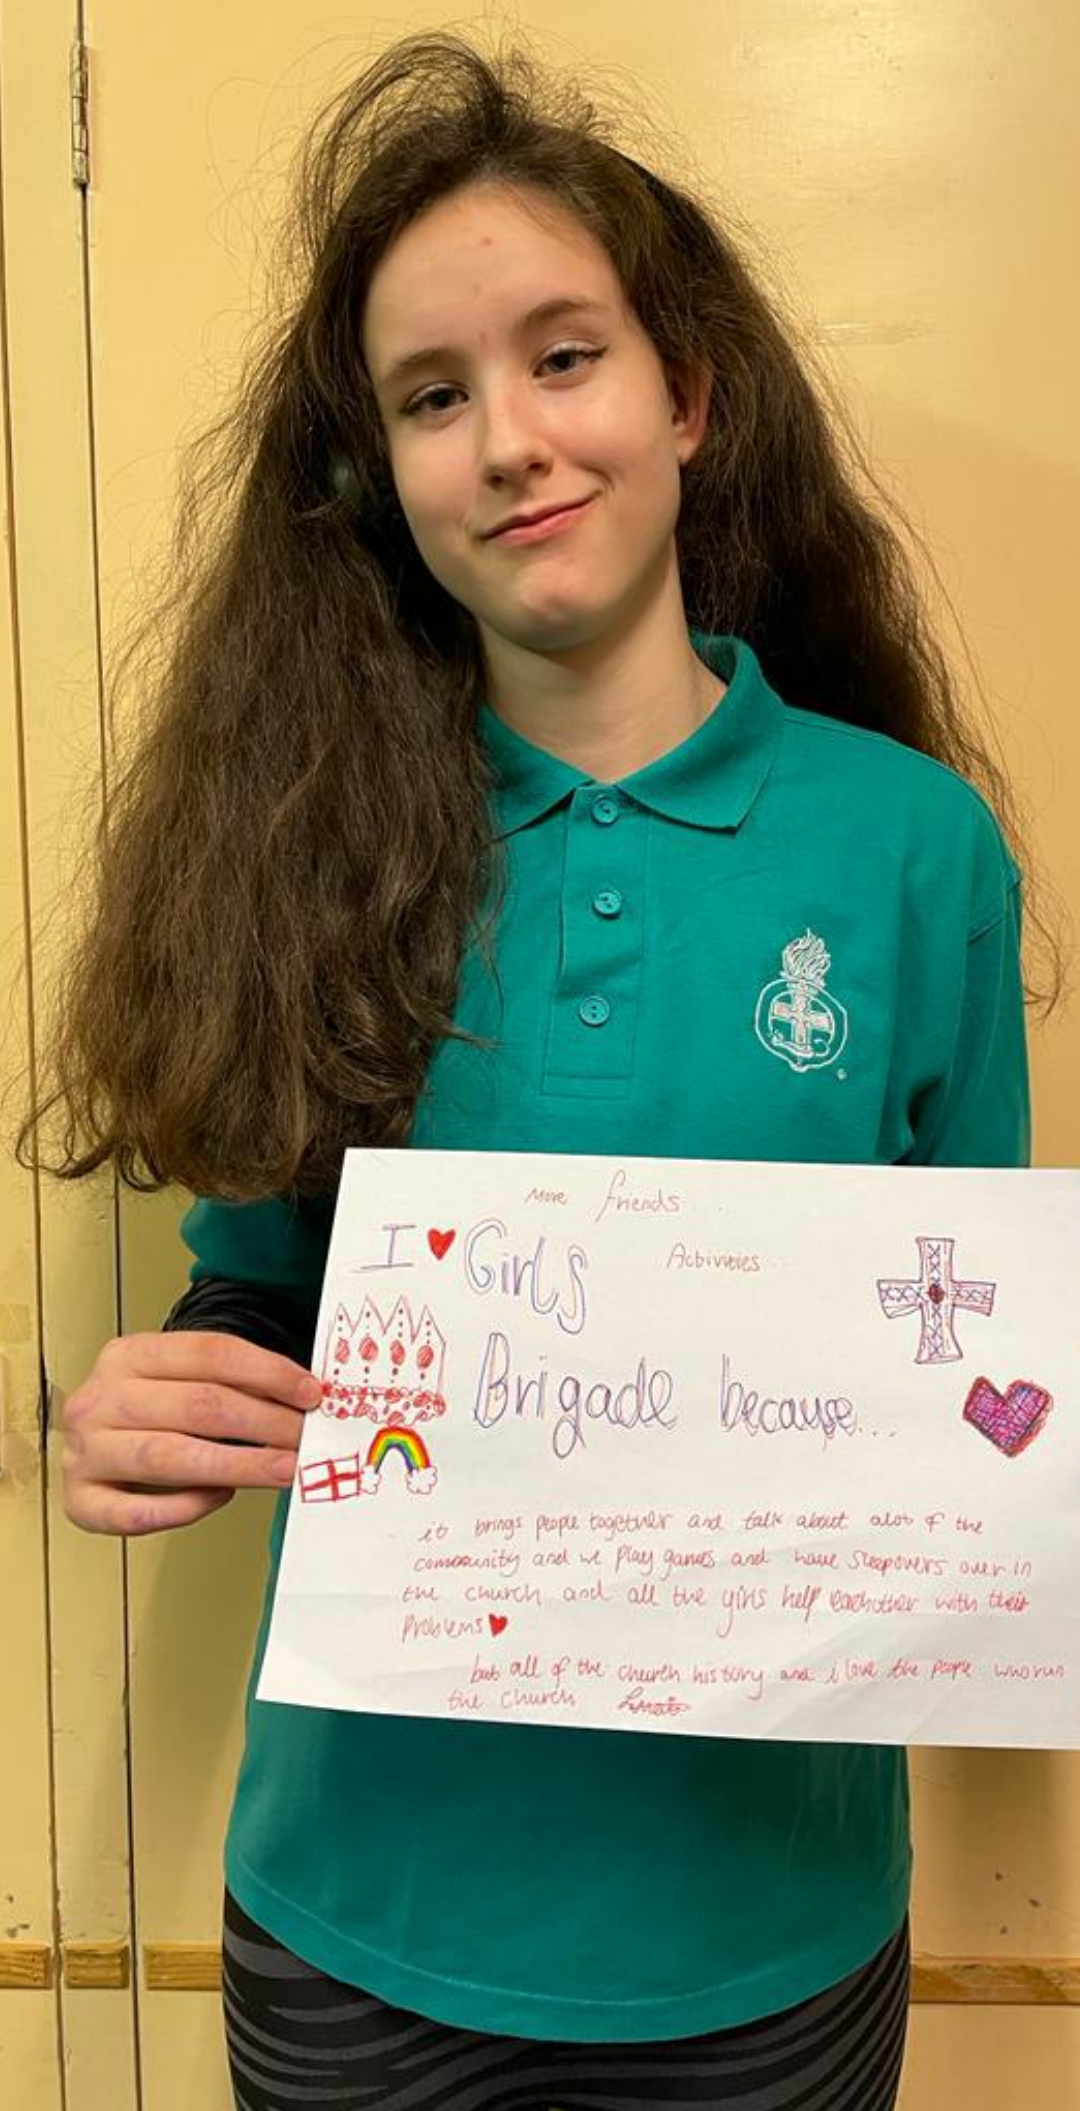 More friends...
I ♥ Girls
Activities...
Brigade because...
it brings people together and talk about alot of the
community and we play games and have sleepovers over in
the church and all the girls help eachother with their
problems ♥
but all of the church history and i love the people who run
the church